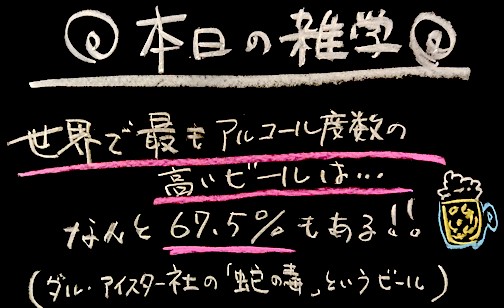 本日の雑学
世界で最もアルコール度数の
高いビールは…
なんと67.5%もある!!
(ダル・アイスター社の「蛇の毒」というビール)